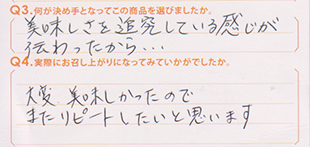 Q3.何が決め手となってこの商品を選びましたか。
美味しさを追究している感じが
伝わったから・・・
Q4.実際にお召し上がりになってみていかがでしたか。
大変 美味しかったので
またリピートしたいと思います